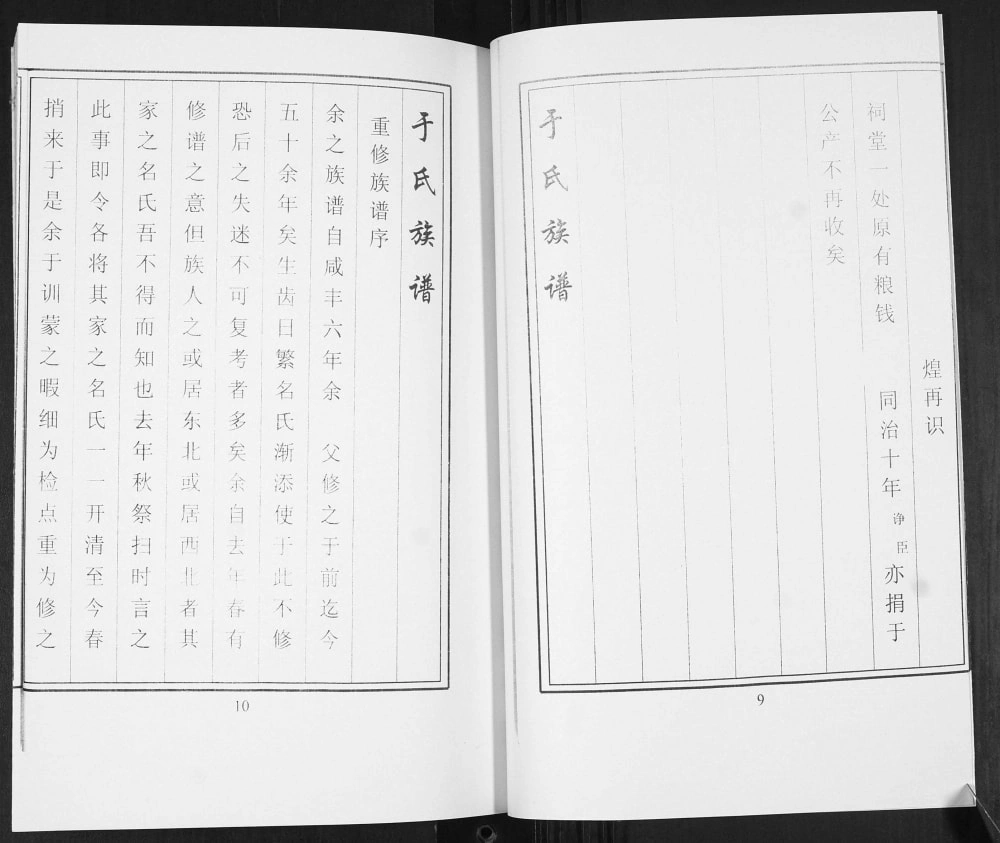 煌再识
祠堂一处原有粮钱　同治十年诤臣亦捐于
公产不再收矣
于氏族谱
9
于氏族谱
重修族谱序
余之族谱自咸丰六年余　父修之于前迄今
五十余年矣生齿日繁名氏渐添使于此不修
恐后之失迷不可复考者多矣余自去年春有
修谱之意但族人之或居东北或居西北者其
家之名氏吾不得而知也去年秋祭扫时言之
此事即令各将其家之名氏一一开清至今春
捎来于是余于训蒙之暇细为检点重为修之
10